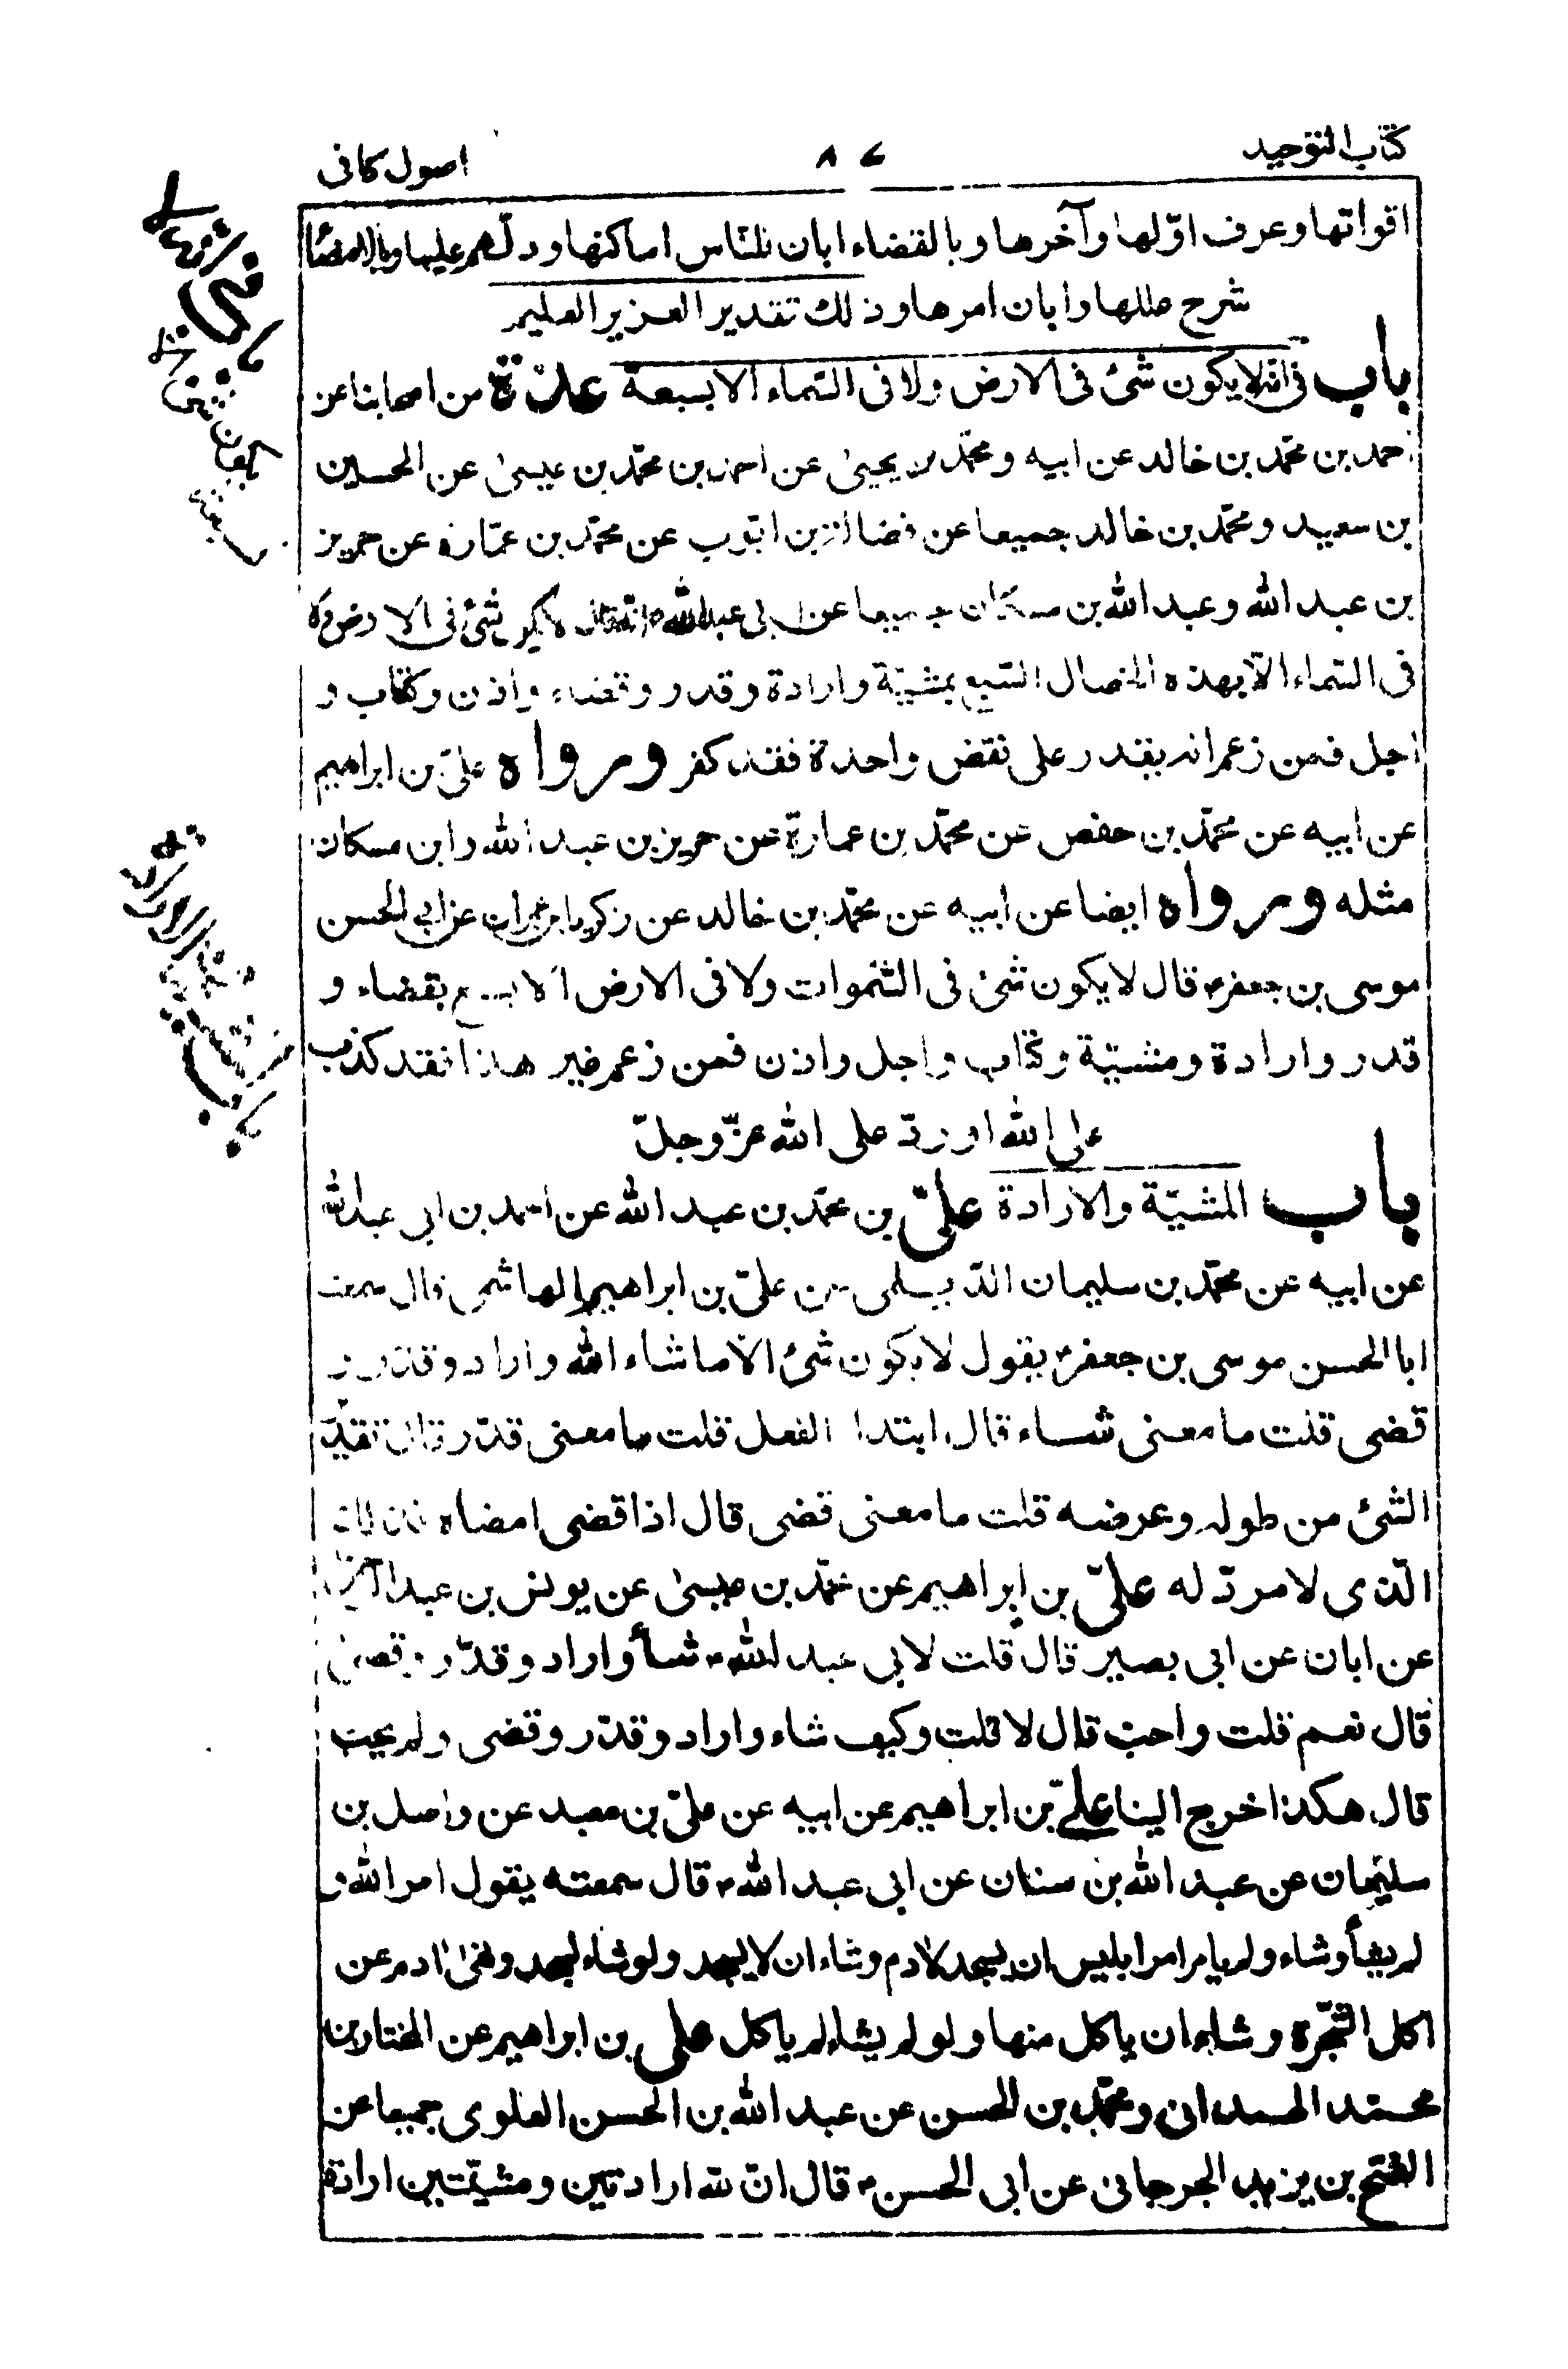 كتاب التوحيد
٨٧
اصول كافى
اقواتها وعرف اوّلها وآخرها وبالقضاء ابان للنّاس اماكنها ودلّهم عليها وبالامضاء
شرح عللها وابان امرها وذلك تقدير العزيز العليم
باب فى انّه لا يكون شئ فى الارض ولا فى السّماء الا بسبعة عدّة من اصحابنا عن
احمد بن محمّد بن خالد عن ابيه ومحمّد بن يحيىٰ عن احمد بن محمّد بن عيسىٰ عن الحسين
بن سعيد ومحمّد بن خالد جميعا عن فضالة بن ايّوب عن محمّد بن عمّارة عن حريز
بن عبد الله وعبد الله بن مسكان جميعا عن ابى عبدالله انّه قال لا يكون شئ فى الارض ولا
فى السّماء الّا بهذه الخصال السّبع بمشيّة وارادة وقدر وقضاء واذن وكتاب و
اجل فمن زعم انه يقدر على نقض واحدة فقد كفر ورواه علىّ بن ابراهيم
عن ابيه عن محمّد بن حفص عن محمّد بن عمارة عن حريز بن عبد الله وابن مسكان
مثله ورواه ايضا عن ابيه عن محمّد بن خالد عن زكريا بن عمران عن ابى الحسن
موسى بن جعفر قال لا يكون شئ فى السّموات ولا فى الارض الا بسبع بقضاء و
قدر وارادة ومشيّة وكتاب واجل واذن فمن زعم غير هذا فقد كذب
على الله او ردّ على الله عزّ وجلّ
باب المشيّة والارادة علىّ بن محمّد بن عبد الله عن احمد بن ابى عبدالله
عن ابيه عن محمّد بن سليمان الدّيلمى عن علىّ بن ابراهيم الهاشمى قال سمعت
ابا الحسن موسى بن جعفر يقول لا يكون شئ الا ما شاء الله واراد وقدّر و
قضى قلت ما معنى شاء قال ابتدا الفعل قلت ما معنى قدّر قال تقدير
الشئ من طوله وعرضه قلت ما معنى قضى قال اذا قضى امضاه فذلك
الّذى لا مردّ له علىّ بن ابراهيم عن محمّد بن عيسىٰ عن يونس بن عبد الرحمن
عن ابان عن ابى بصير قال قلت لابى عبد الله شأ واراد وقدّر وقضى
قال نعم قلت واحبّ قال لا قلت وكيف شاء واراد وقدّر وقضى ولم يحبّ
قال هكذا خرج الينا علىّ بن ابراهيم عن ابيه عن علىّ بن معبد عن واصل بن
سليمان عن عبد الله بن سنان عن ابى عبد الله قال سمعته يقول امر الله و
لم يشأ وشاء ولم يامر امر ابليس ان يسجد لادم وشاء ان لا يسجد ولو شاء لسجد ونهىٰ ادم عن
اكل الشّجرة وشاء ان ياكل منها ولو لم يشاء لم ياكل على بن ابراهيم عن المختار بن
محمّد الهمدانى ومحمّد بن الحسن عن عبد الله بن الحسن العلوى جميعا عن
الفتح بن يزيد الجرجانى عن ابى الحسن قال انّ لله ارادتين ومشيّتين ارادة